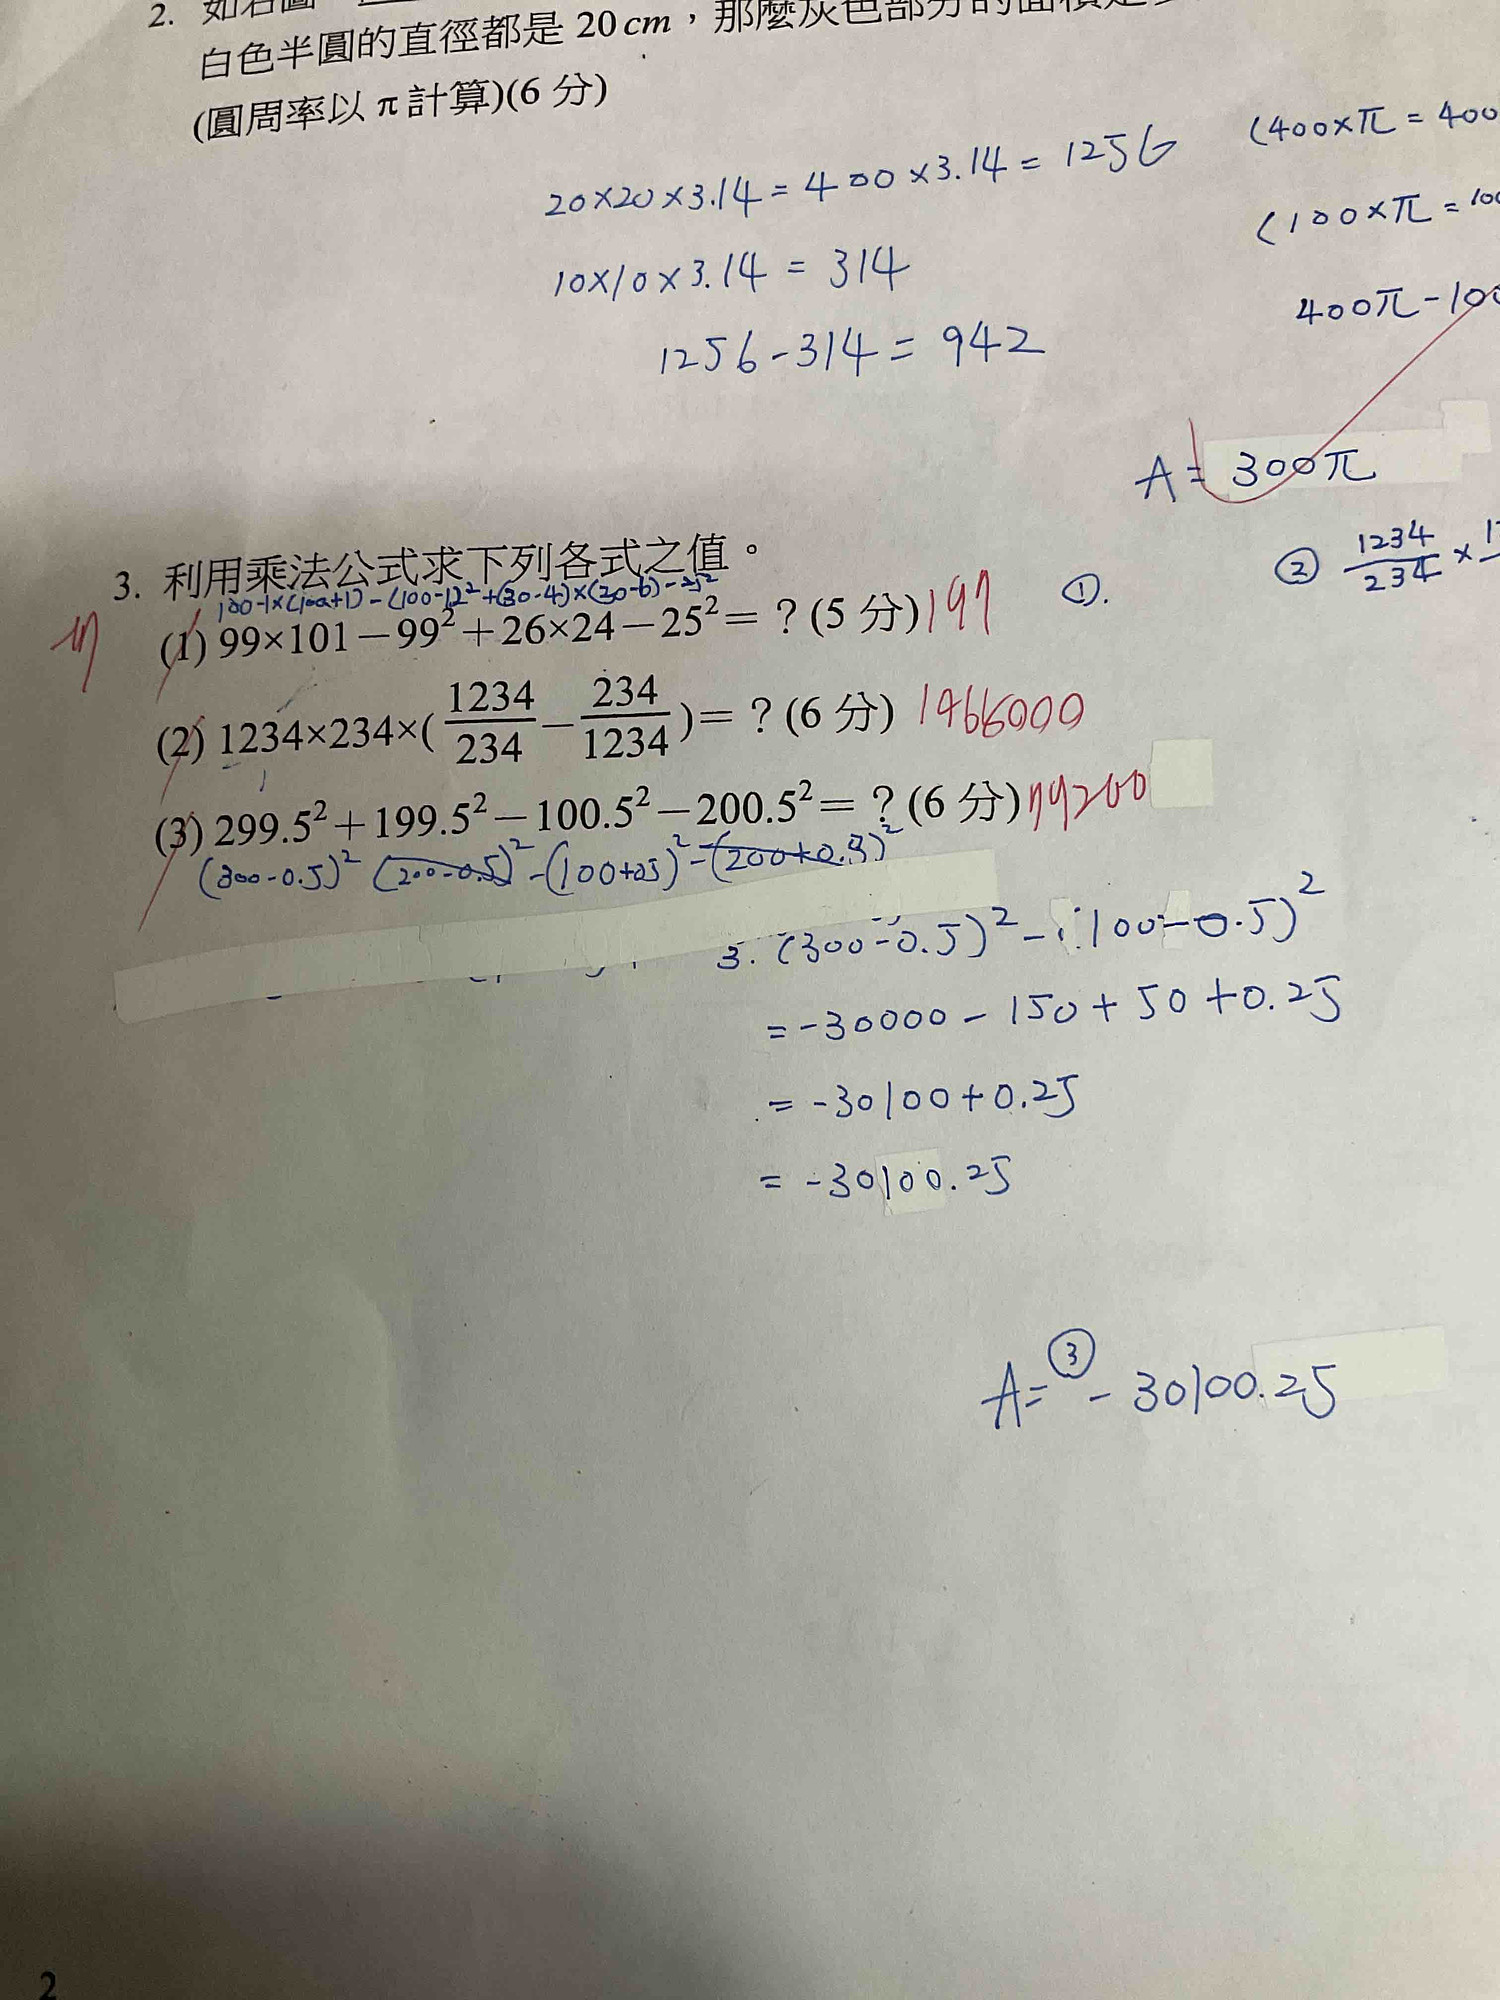 2. 如右圖
白色半圓的直徑都是 20 cm，那麼灰色部分的面積是
(圓周率以 π 計算)(6 分)
20×20×3.14 = 400×3.14 = 1256
(400×π = 400
10×10×3.14 = 314
(100×π = 100
1256-314 = 942
400π-100
A = 300π
3. 利用乘法公式求下列各式之值。
100-1×(100+1)-(100-1)²+(30-4)×(30-6)-25²
(1) 99×101－99²＋26×24－25²＝？(5 分) 197
①.
② 1234/234 × 1
(2) 1234×234×(1234/234－234/1234)＝？(6 分) 1466000
(3) 299.5²＋199.5²－100.5²－200.5²＝？(6 分) 79200
(300-0.5)² (200-0.5)² -(100+05)² -(200+0.5)²
3. (300-0.5)² - (100-0.5)²
= -30000 - 150 + 50 + 0.25
= -30100+0.25
= -30100.25
A= ③ - 30100.25
2